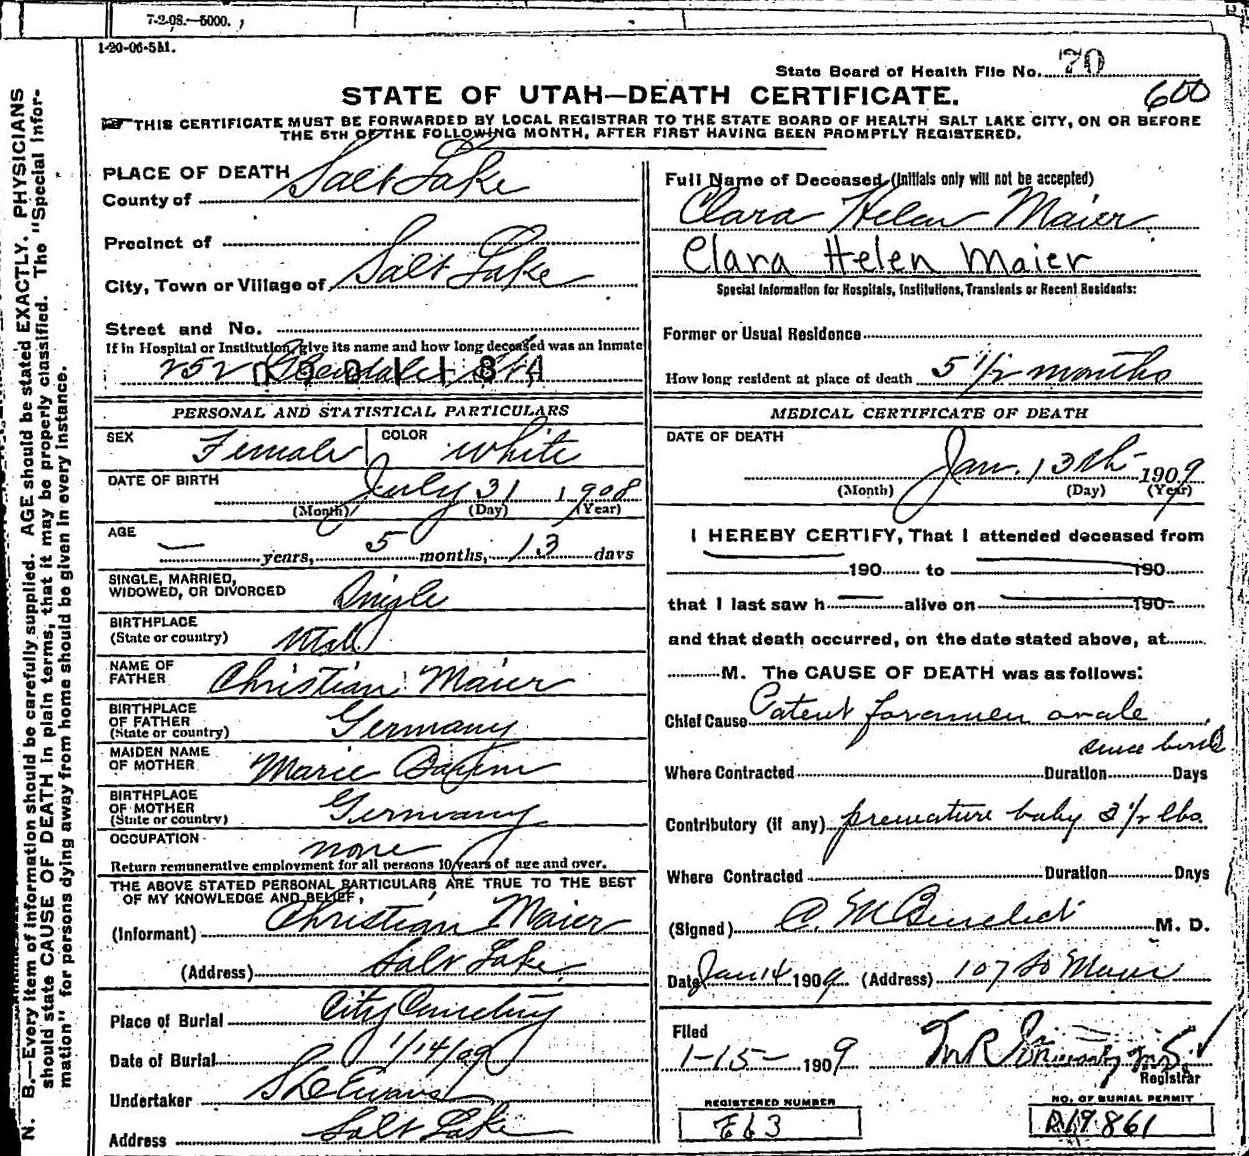 7-2-08.—5000.
1-20-06-5M.
State Board of Health File No. 70
600
STATE OF UTAH—DEATH CERTIFICATE.
THIS CERTIFICATE MUST BE FORWARDED BY LOCAL REGISTRAR TO THE STATE BOARD OF HEALTH SALT LAKE CITY, ON OR BEFORE
THE 5TH OF THE FOLLOWING MONTH, AFTER FIRST HAVING BEEN PROMPTLY REGISTERED.
N. B.—Every item of information should be carefully supplied. AGE should be stated EXACTLY. PHYSICIANS
should state CAUSE OF DEATH in plain terms, that it may be properly classified. The "Special Infor-
mation" for persons dying away from home should be given in every instance.
PLACE OF DEATH
County of Salt Lake
Precinct of
City, Town or Village of Salt Lake
Street and No.
If in Hospital or Institution, give its name and how long deceased was an Inmate
252
PERSONAL AND STATISTICAL PARTICULARS
SEX Female COLOR White
DATE OF BIRTH July 31 1908
(Month) (Day) (Year)
AGE — years, 5 months, 13 days
SINGLE, MARRIED,
WIDOWED, OR DIVORCED Single
BIRTHPLACE
(State or country) Utah
NAME OF
FATHER Christian Maier
BIRTHPLACE
OF FATHER
(State or country) Germany
MAIDEN NAME
OF MOTHER Marie
BIRTHPLACE
OF MOTHER
(State or country) Germany
OCCUPATION none
Return remunerative employment for all persons 10 years of age and over.
THE ABOVE STATED PERSONAL PARTICULARS ARE TRUE TO THE BEST
OF MY KNOWLEDGE AND BELIEF,
(Informant) Christian Maier
(Address) Salt Lake
Place of Burial City Cemetery
Date of Burial 1/14/09
Undertaker Evans
Address Salt Lake
Full Name of Deceased (Initials only will not be accepted)
Clara Helen Maier
Clara Helen Maier
Special Information for Hospitals, Institutions, Transients or Recent Residents:
Former or Usual Residence
How long resident at place of death 5 1/2 months
MEDICAL CERTIFICATE OF DEATH
DATE OF DEATH
Jan. 13th 1909
(Month) (Day) (Year)
I HEREBY CERTIFY, That I attended deceased from
190 to 190
that I last saw h alive on 190
and that death occurred, on the date stated above, at
M. The CAUSE OF DEATH was as follows:
Chief Cause Patent foramen ovale
since birth
Where Contracted Duration Days
Contributory (if any) premature baby 3 1/2 lbs.
Where Contracted Duration Days
(Signed) C. M. Benedict M. D.
Date Jan 14 1909 (Address) 107 So Main
Filed
1-15- 1909
Registrar
REGISTERED NUMBER
E63
NO. OF BURIAL PERMIT
A19861